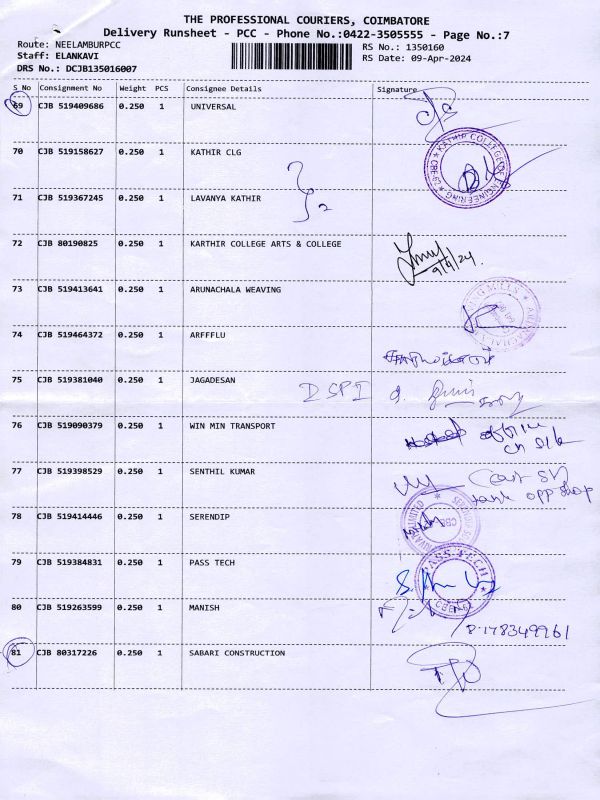 THE PROFESSIONAL COURIERS, COIMBATORE
Delivery Runsheet - PCC - Phone No.:0422-3505555 - Page No.:7
Route: NEELAMBURPCC
RS No.: 1350160
Staff: ELANKAVI
RS Date: 09-Apr-2024
DRS No.: DCJB135016007
S No Consignment No Weight PCS Consignee Details Signature
69 CJB 519409686 0.250 1 UNIVERSAL
70 CJB 519158627 0.250 1 KATHIR CLG
KATHIR COLLEGE OF ENGINEERING
71 CJB 519367245 0.250 1 LAVANYA KATHIR
72 CJB 80190825 0.250 1 KARTHIR COLLEGE ARTS & COLLEGE
9/4/24.
73 CJB 519413641 0.250 1 ARUNACHALA WEAVING
74 CJB 519464372 0.250 1 ARFFFLU
75 CJB 519381040 0.250 1 JAGADESAN
76 CJB 519090379 0.250 1 WIN MIN TRANSPORT
77 CJB 519398529 0.250 1 SENTHIL KUMAR
opp shop
78 CJB 519414446 0.250 1 SERENDIP
79 CJB 519384831 0.250 1 PASS TECH
PASS TECH
80 CJB 519263599 0.250 1 MANISH
81 CJB 80317226 0.250 1 SABARI CONSTRUCTION